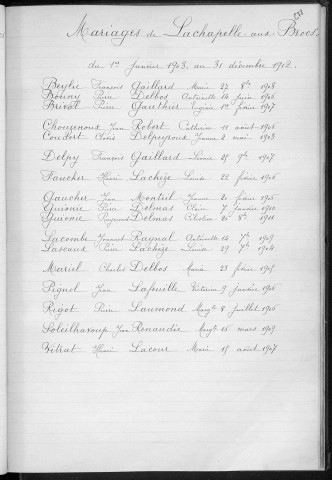 Mariages de Lachapelle-aux-Brocs
du 1er janvier 1903 au 31 décembre 1912.
Beylie François Gaillard Marie 27 8bre 1908
Bounay Pierre Delbos Antoinette 14 juin 1906
Brivot Pierre Gauthier Eugénie 1er 1907
Chouzenoux Jean Robert Catherine 11 août 1906
Coudert Denis Delpeyroux Jeanne 2 mai 1903
Delpy François Gaillard Léonie 29 9bre 1907
Faucher Henri Lachèze Louise 22 février 1906
Gaucher Jean Monteil Jeanne 2 février 1905
Guionie Pierre Delmas Claire 7 janvier 1910
Guionie Raymond Delmas Célestine 20 8bre 1911
Lacombe Ragnal Antoinette 14 7bre 1909
Lascaux Pierre Lachèze Louise 27 7bre 1904
Mariel Charles Delbos Maria 23 février 1905
Pignol Jean Lafeuille Victorine 9 janvier 1906
Rigot Pierre Laumond Margte 8 juillet 1905
Soleilhavoup Jean Renaudie Margte 16 mars 1909
Vitrat Henri Lacour Marie 15 août 1907